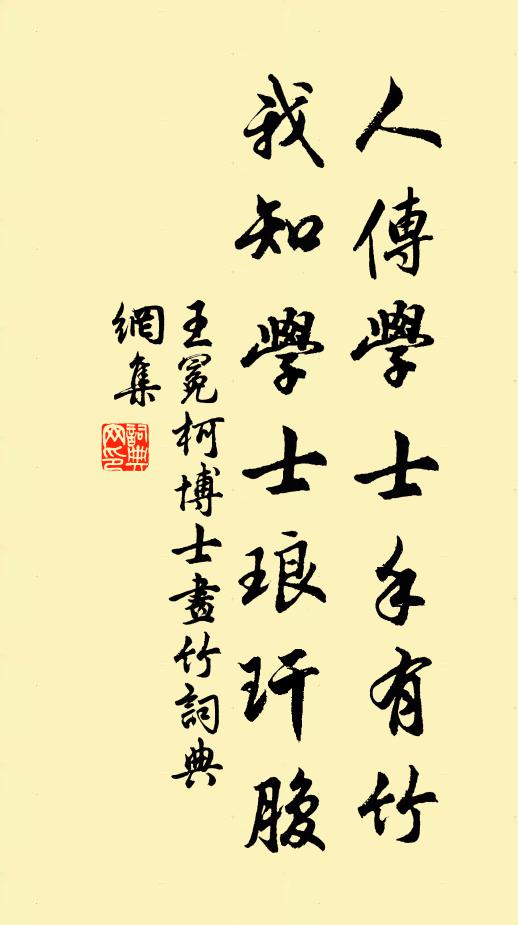 人傳學士手有竹
我知學士琅玕腹
王冕柯博士畫竹詞典
網集
詞典
网印